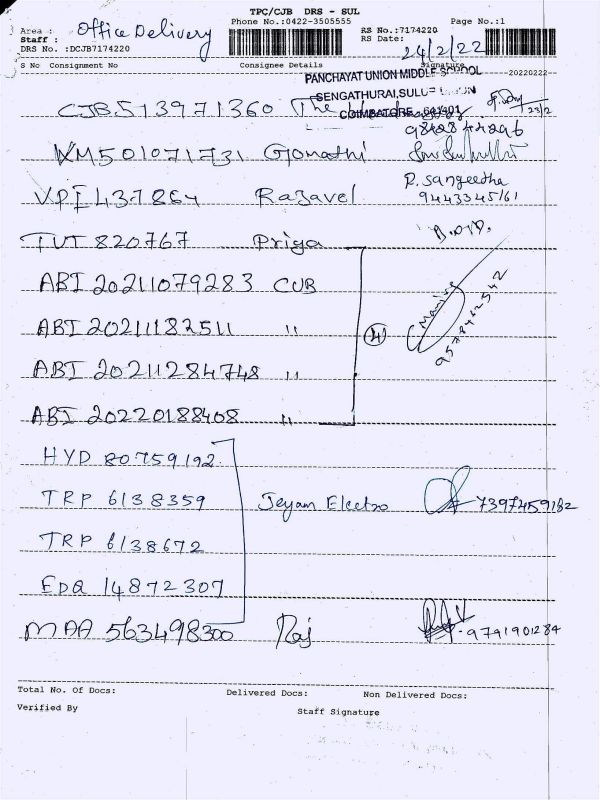 TPC/CJB DRS - SUL
Phone No.:0422-3505555
Page No.:1
Area : Office Delivery
Staff :
DRS No. :DCJB7174220
RS No.:7174220
RS Date: 24/2/22
S No Consignment No Consignee Details Signature
20220222-
PANCHAYAT UNION MIDDLE SCHOOL
SENGATHURAI, SULUR UNION
COIMBATORE - 641401
CJB513971360 The 23/2
98428 44296
KM501071731 Gomathi
VPI437864 Rajavel R. Sangeetha
9443345161
TUT 820767 Priya
ABI 20211079283 CUB
ABI 20211182511 "
4
ABI 20211284748 "
9578462542
ABI 20220188408 "
HYD 80759192
TRP 6138359 Jeyam Electro 7397459182
TRP 6138672
EDQ 14872307
MAA 563498300 Raj 9791901284
Total No. Of Docs: Delivered Docs: Non Delivered Docs:
Verified By Staff Signature